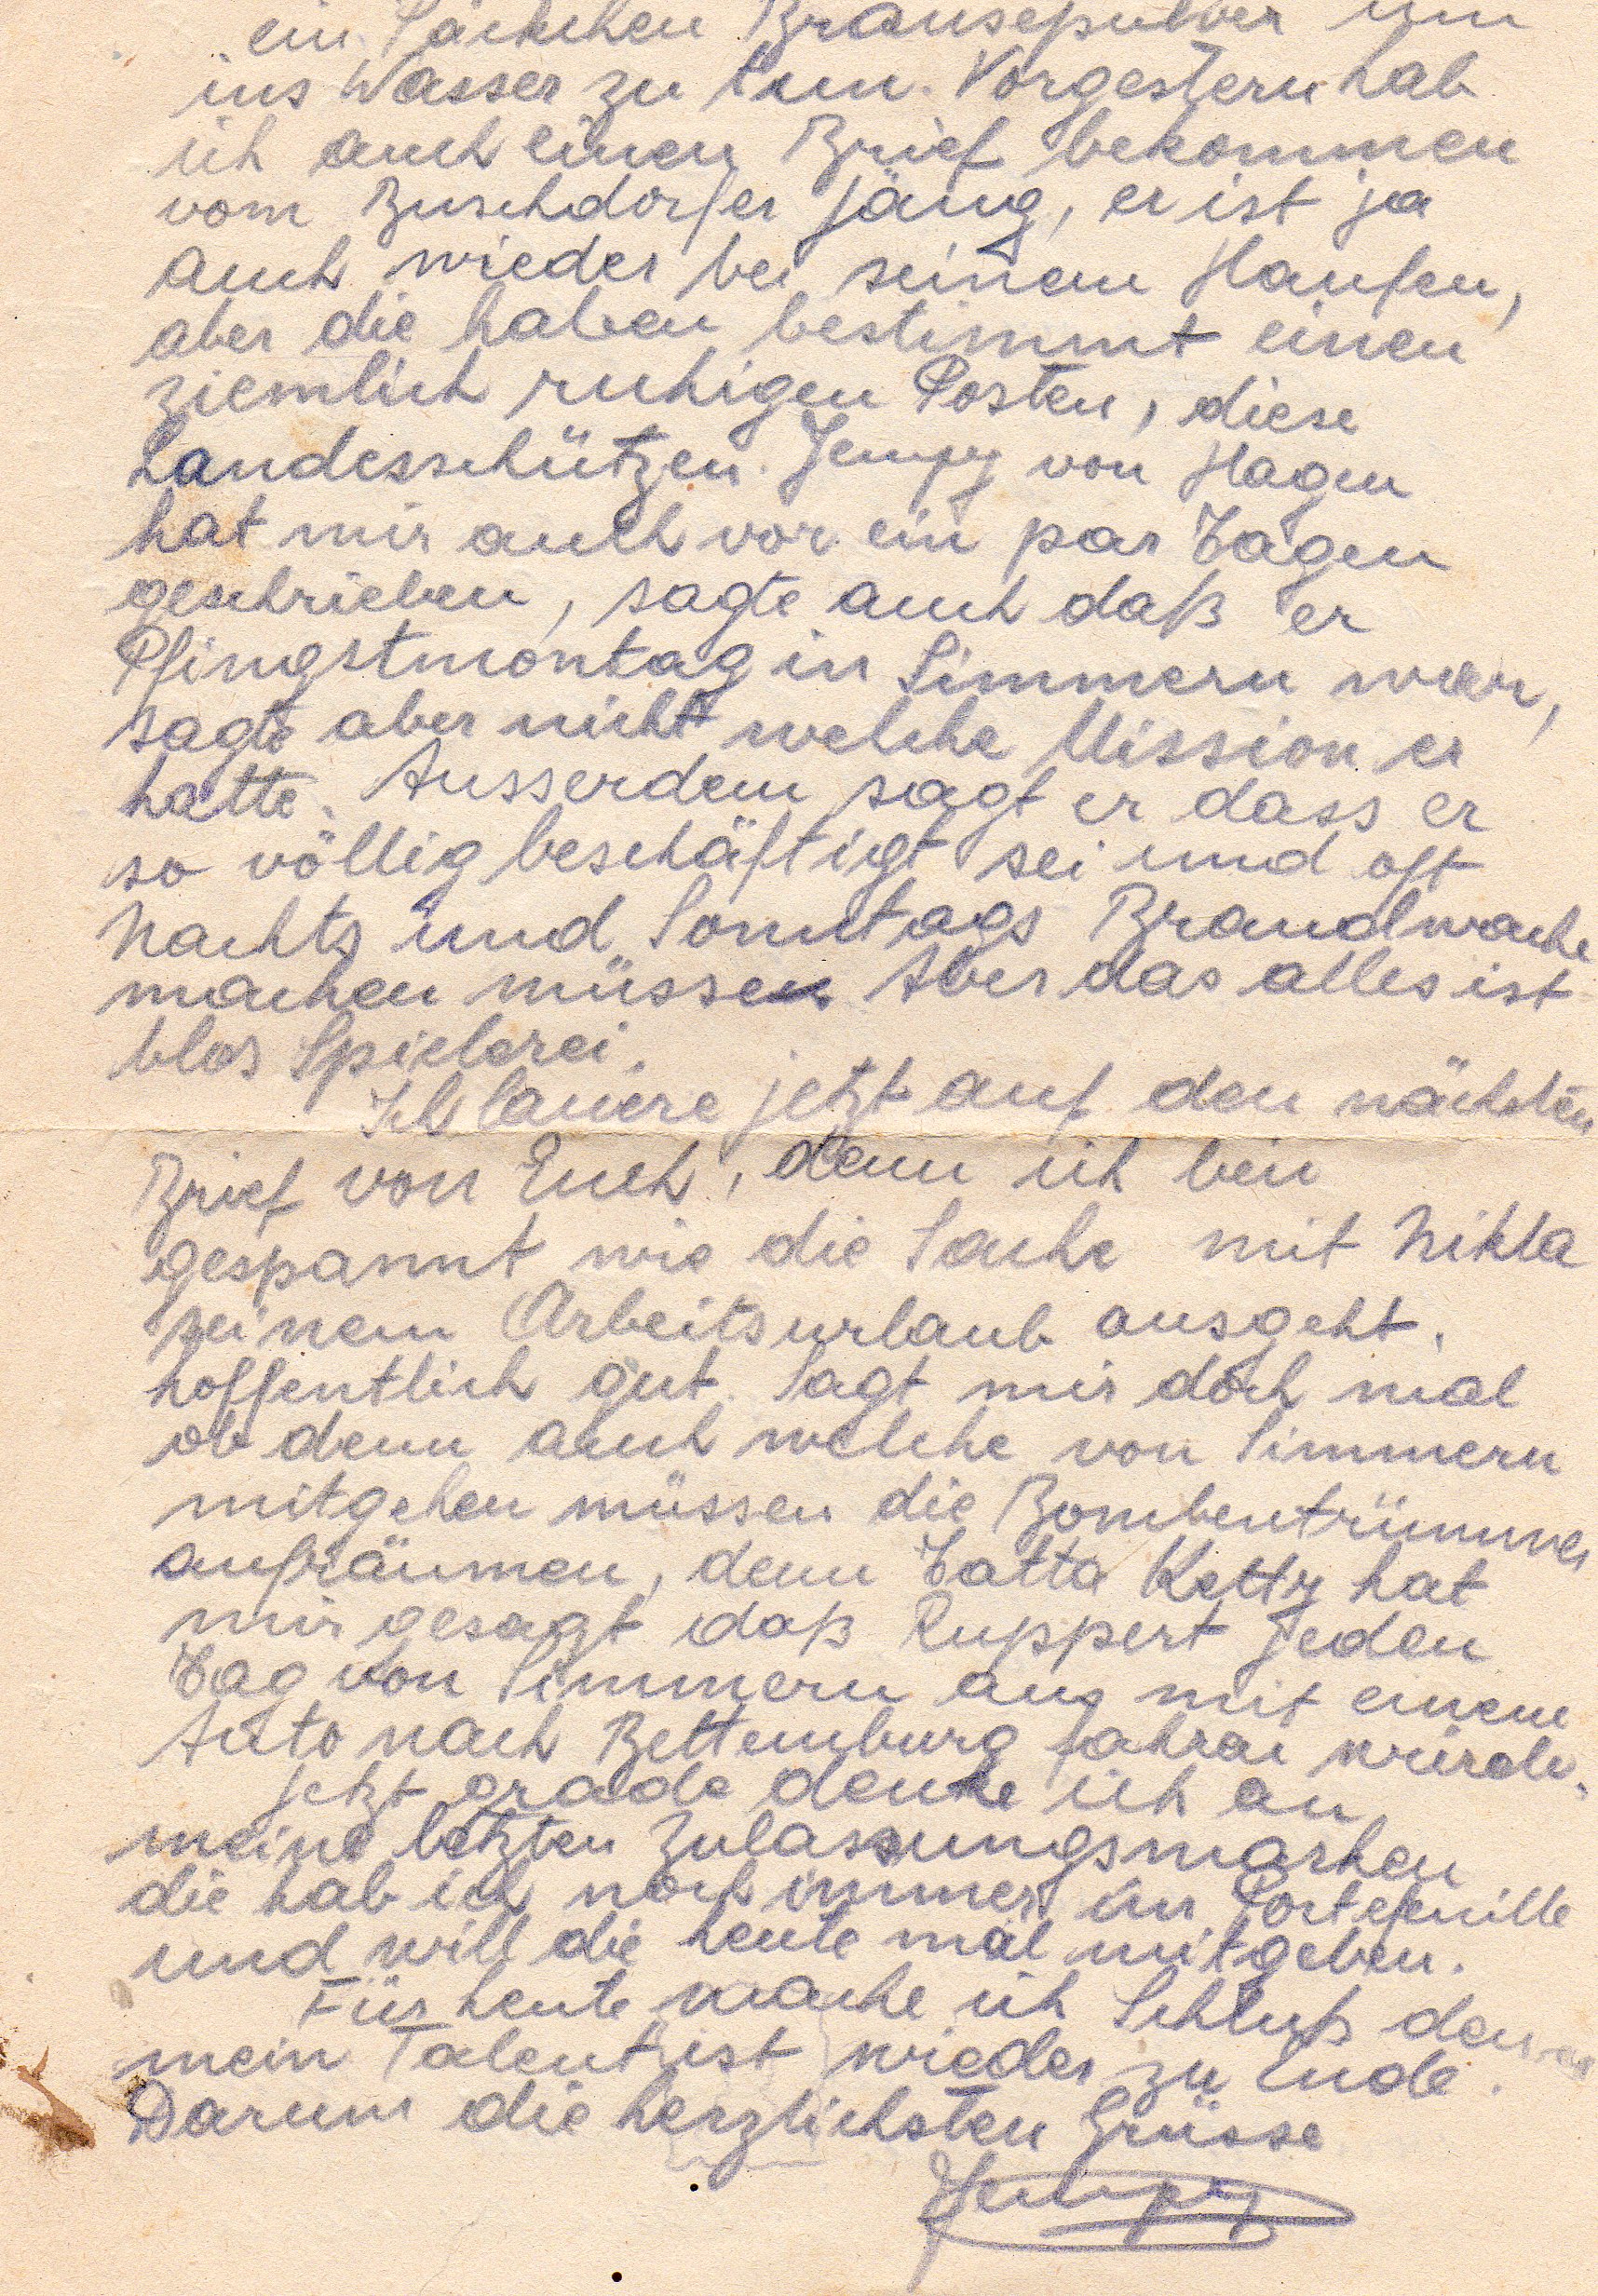 ein Säckchen Brausepulver um
ins Wasser zu tun. Vorgestern hab
ich auch einen Brief bekommen
vom Buschdorfer Jäng, er ist ja
auch wieder bei seinem Haufen,
aber die haben bestimmt einen
ziemlich ruhigen Posten, diese
Landesschützen. Jempy von Hagen
hat mir auch vor ein par Tagen
geschrieben, sagte auch daß er
Pfingstmontag in Simmern war,
sagte aber nicht welche Mission er
hatte. Ausserdem sagt er dass er
so völlig beschäftigt sei und oft
Nachts und Sonntags Brandwache
machen müssen Aber das alles ist
blos Spielerei.
Ich lauere jetzt auf den nächsten
Brief von Euch, denn ich bin
gespannt wie die Sache mit Nikla
seinem Arbeitsurlaub ausgeht.
hoffentlich gut. Sagt mir doch mal
ob denn auch welche von Simmern
mitgehen müssen die Bombentrümmer
aufräumen, denn Tatta Ketty hat
mir gesagt daß Ruppert jeden
Tag von Simmern aus mit einem
Auto nach Bettemburg fahren würde.
Jetzt grade denke ich an
meine letzten Zulassungsmarken
die hab ich noch immer im Portefeuille
und will die heute mal mitgeben.
Für heute mache ich Schluß denn
mein Talent ist wieder zu Ende.
Darum die herzlichsten Grüsse
Jempy